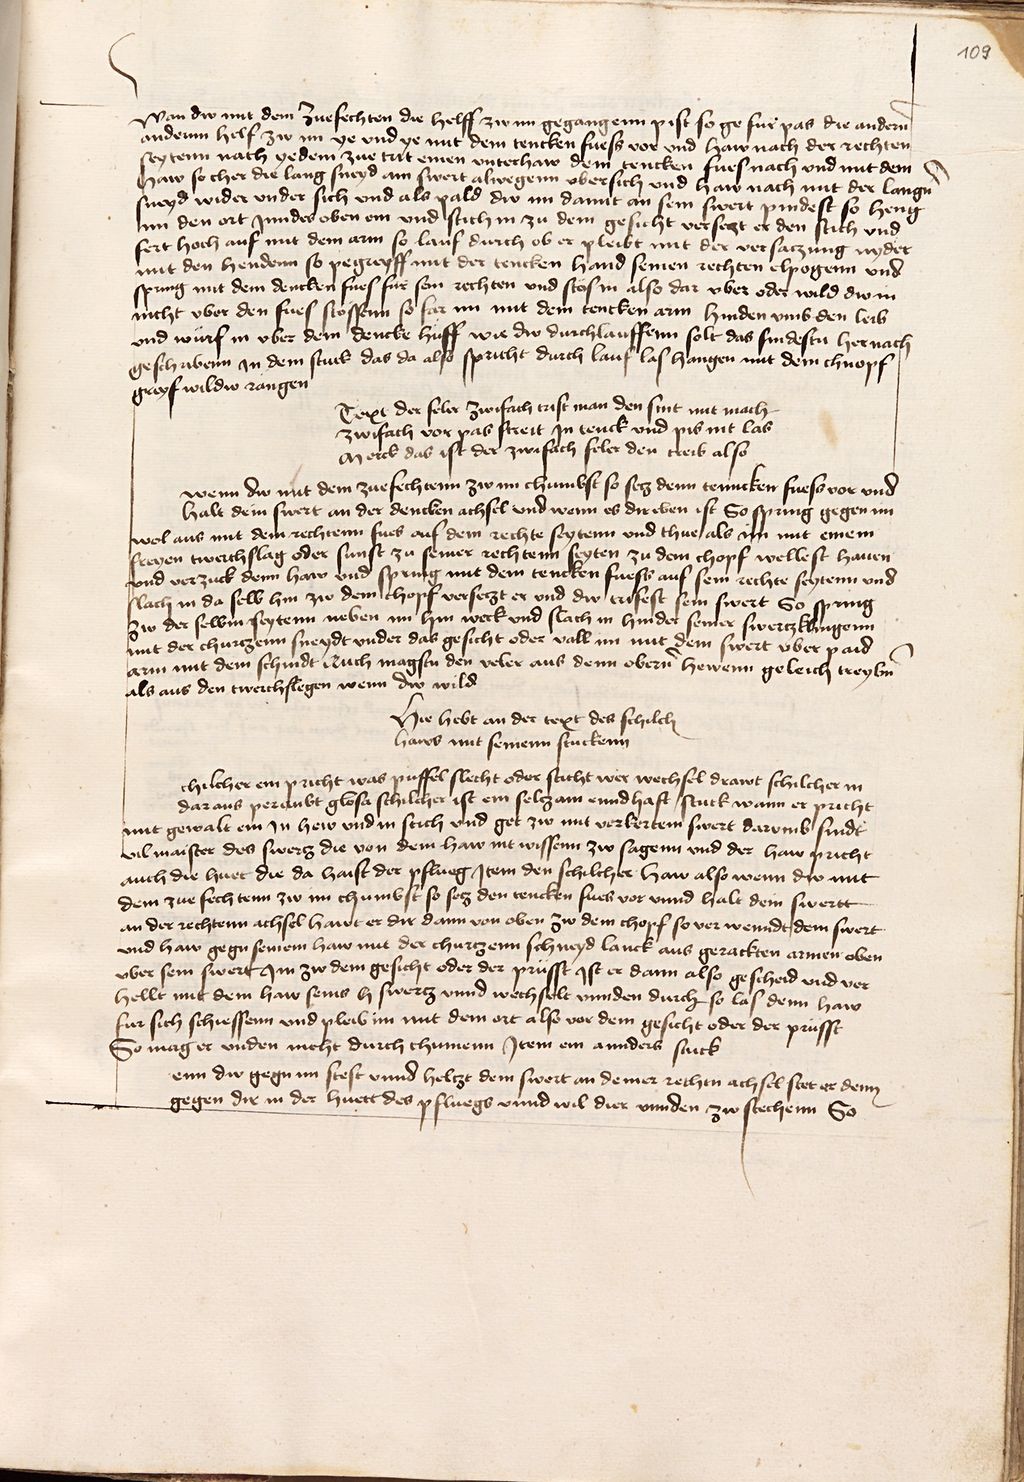 109
Wan dw mit dem Zuefechten die helff zw im gegangenn pist so ge fur pas die andern
anderm helf zw im ye vnd ye mit dem tencken fuess vor vnd haw nach der rechten
seytenn nach yedem zue trit einen vnterhaw dem tencken fues nach vnd mit dem
haw so cher die lang sneyd am swert alwegenn vbersich vnd haw nach mit der langn
sneyd wider vnder sich vnd als pald dw im damit an sem swert pindest so heng
im den ort Inndes oben ein vnd stich in zu dem gesicht versetzt er den stich vnd
fert hoch auf mit dem arm so lauf durch ob er pleibt mit der versatzung nyder
mit den hendenn so pegreyff mit der tencken hand seinen rechten elpogenn vnd
spring mit dem dencken fues für sein rechten vnd stos in also dar vber oder wild dw in
nicht vber den fues stossenn so far im mit dem tencken arm hinden vmb den leib
vnd würf in vber dem dencke hüff wie dw durchlauffenn solt das findestu hernach
geschribenn in dem stuck das da also spricht durch lauf las hangen mit dem chnopf
greyf wildw rangen
Text der feler zwifach trift man den snit mit mach
zwifach vor pas streit In tenck vnd pis nit las
Merck das ist der zwifach feler den treib also
wenn dw mit dem zuefechtenn zw im chumbst so secz denn tenncken fuess vor vnd
halt dem swert an der dencken achsel vnd wenn es dir eben ist So spring gegen im
wol aus mit dem rechtenn fues auf dem rechte seytenn vnd thue als im mit einem
freyen twerchslag oder sunst zu seiner rechtenn seyten zu dem chopf wellest hauen
vnd verzuck denn haw vnd spring mit dem tencken fuess auf sein rechte seytenn vnd
slach in da selb hin zw dem chopf versetzt er vnd dw trifest sein swert So spring
zw der selbin seytenn neben im hin weck vnd slach in hinder seiner swertzklingenn
mit der churczenn sneydt vnder das gesicht oder vall im mit dem swert vber paid
arm mit dem schnidt Auch magstu den veler aus denn obern hewenn geleich treybin
als aus den twerchslegen wenn dw wild
Hie hebt an der text des schilch
haws mit seinenn stuckenn
chilcher ein pricht was puffel slecht oder sticht wer wechsel drawt schilcher in
daraus peraubt glosa schilcher ist ein selczam ernndhaft stuck wann er pricht
mit gewalt ein In hew vnd in stich vnd get zw mit verkertem swert darumb sindt
vil maister des swertz die von dem haw nit wissenn zw sagenn vnd der haw pricht
auch die huet die da haist der pflueg Item den schilcher haw also wenn dw mit
dem zue fechtenn zw im chumbst so setz den tencken fues vor vnnd halt dein swertt
an der rechtenn achsel hawt er dir dann von oben zw dem chopf so verwenndt dem swert
vnd haw gegn seinem haw mit der churtzenn schneyd lanck aus gerackten armen oben
vber sem swert Im zw dem gesicht oder der prüsst Ist er dann also gescheid vnd ver
hellt mit dem haw seins h swertz vnnd wechselt vnnden durch so las denn haw
fur sich schiessenn vnd pleib im mit dem ort also vor dem gesicht oder der prüsst
So mag er vnden nicht durch chumenn Item ein annders stuck
enn dw gegn im stest vnnd heltzt dem swert an deiner rechtn achsel stet er denn
gegen dir in der huett des pfluegs vnnd wil dier vnnden zw stechenn So